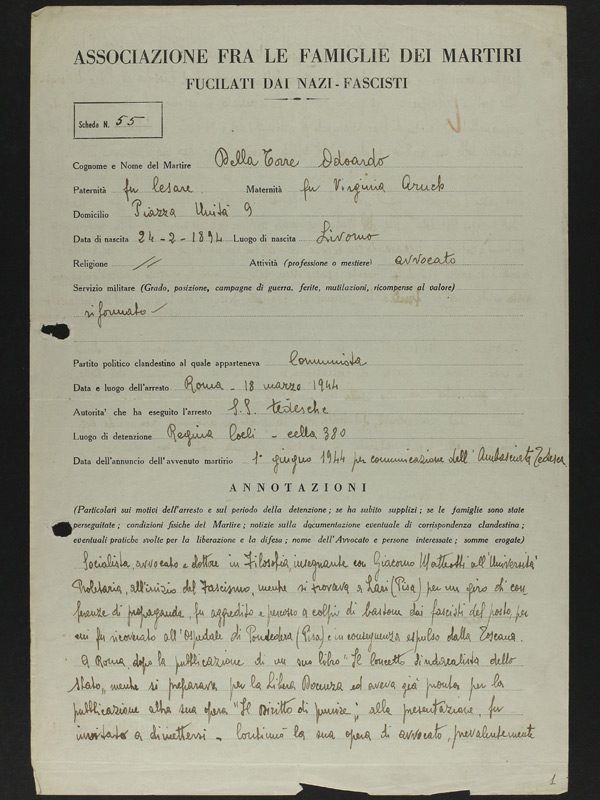 ASSOCIAZIONE FRA LE FAMIGLIE DEI MARTIRI
FUCILATI DAI NAZI-FASCISTI
Scheda N. 55
Cognome e Nome del Martire Della Torre Odoardo
Paternità fu Cesare Maternità fu Virginia Aruch
Domicilio Piazza Unità 9
Data di nascita 24-2-1894 Luogo di nascita Livorno
Religione // Attività (professione o mestiere) avvocato
Servizio militare (Grado, posizione, campagne di guerra, ferite, mutilazioni, ricompense al valore)
riformato
Partito politico clandestino al quale apparteneva Comunista
Data e luogo dell'arresto Roma - 18 marzo 1944
Autorita' che ha eseguito l'arresto S.S. tedesche
Luogo di detenzione Regina Coeli - cella 380
Data dell'annuncio dell'avvenuto martirio 1° giugno 1944 per comunicazione dell'Ambasciata Tedesca
ANNOTAZIONI
(Particolari sui motivi dell'arresto e sul periodo della detenzione; se ha subito supplizi; se le famiglie sono state
perseguitate; condizioni fisiche del Martire; notizie sulla documentazione eventuale di corrispondenza clandestina;
eventuali pratiche svolte per la liberazione e la difesa; nome dell'Avvocato e persone interessate; somme erogate)
Socialista, avvocato e dottore in Filosofia, insegnante con Giacomo Matteotti all'Università
Proletaria, all'inizio del Fascismo, mentre si trovava a Lari (Pisa) per un giro di con
ferenze di propaganda, fu aggredito e percosso a colpi di bastone dai fascisti del posto, per
cui fu ricoverato all'Ospedale di Pontedera (Pisa) e in conseguenza espulso dalla Toscana.
A Roma, dopo la pubblicazione di un suo libro "Il Concetto Sindacalista dello
Stato", mentre si preparava per la Libera Docenza ed aveva già pronta per la
pubblicazione altra sua opera "Il Diritto di punire", alla presentazione, fu
invitato a dimettersi - Continuò la sua opera di avvocato, prevalentemente
1